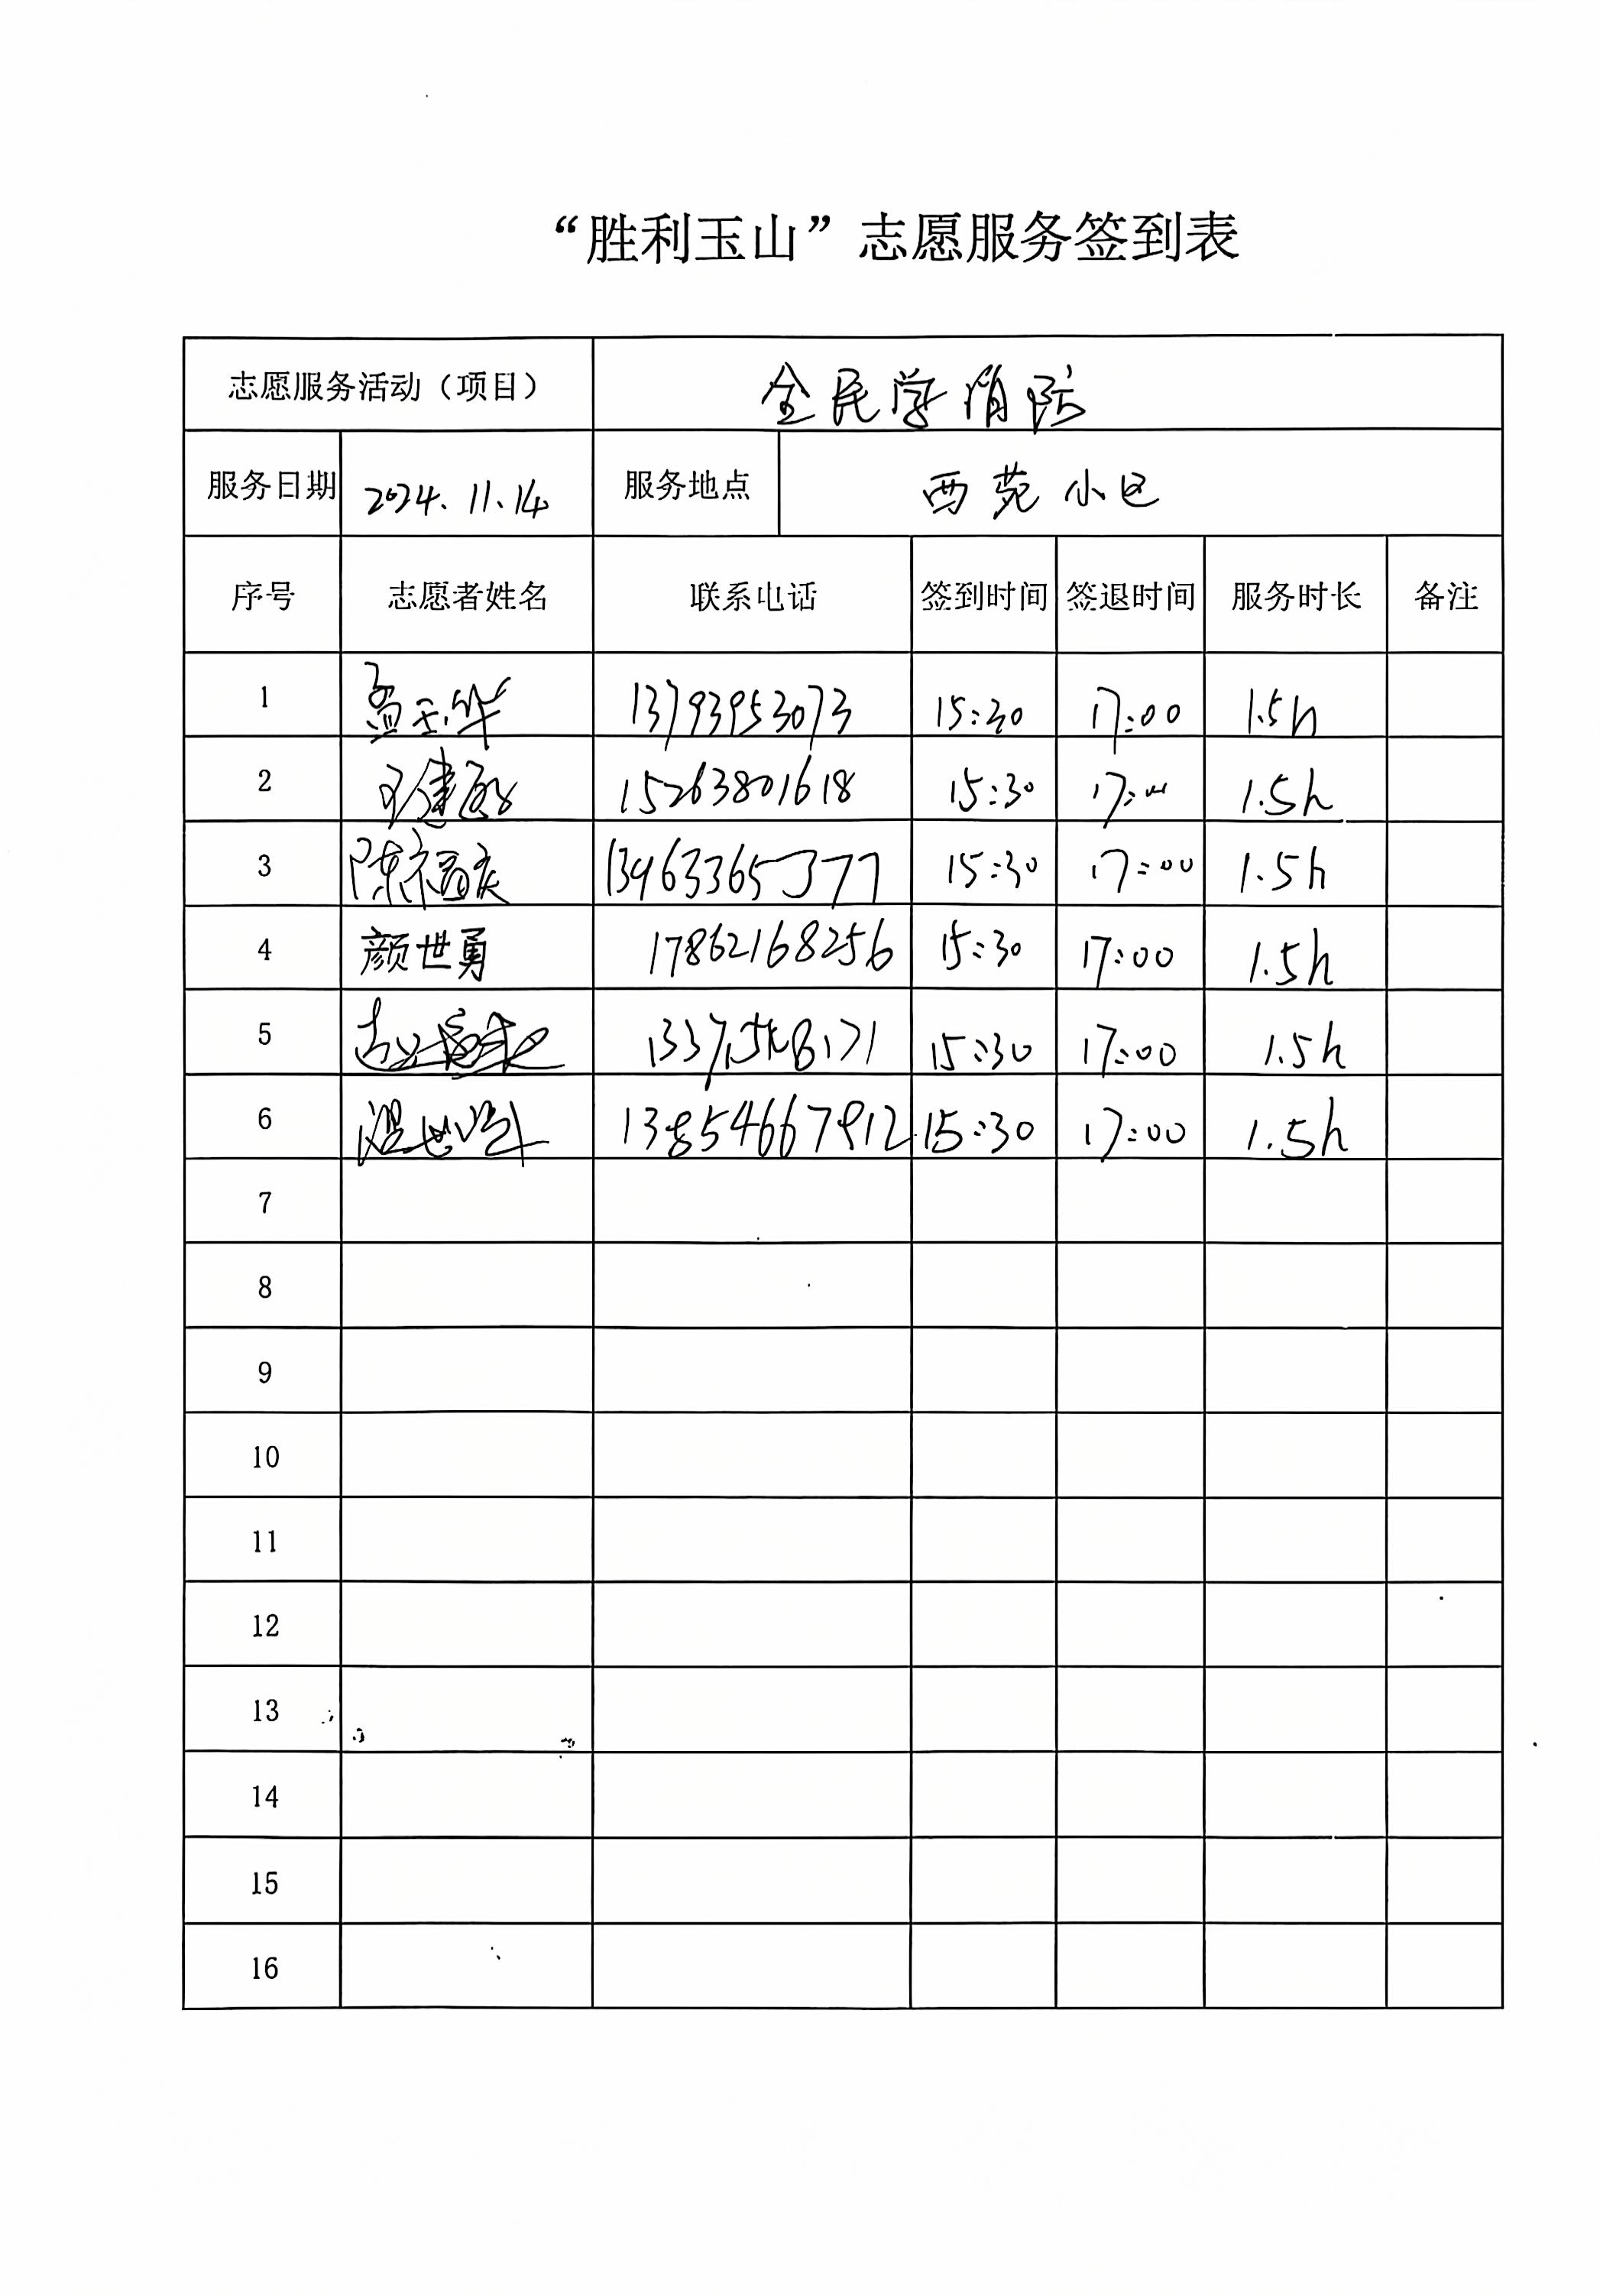 “胜利玉山”志愿服务签到表
志愿服务活动（项目） 全民学消防
服务日期 2024.11.14 服务地点 西苑小区
序号 志愿者姓名 联系电话 签到时间 签退时间 服务时长 备注
1 孟玉华 13793953073 15:30 17:00 1.5h
2 王建 15263801618 15:30 17:00 1.5h
3 陈福庆 13963365377 15:30 17:00 1.5h
4 颜世勇 17862168256 15:30 17:00 1.5h
5 15:30 17:00 1.5h
6 温世 13854667912 15:30 17:00 1.5h
7
8
9
10
11
12
13
14
15
16